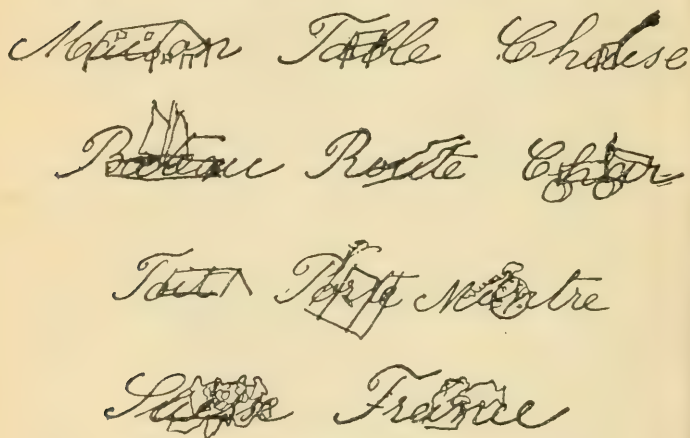 Maison Table Chaise
Bateau Route Char
Toit Porte Montre
Suisse France